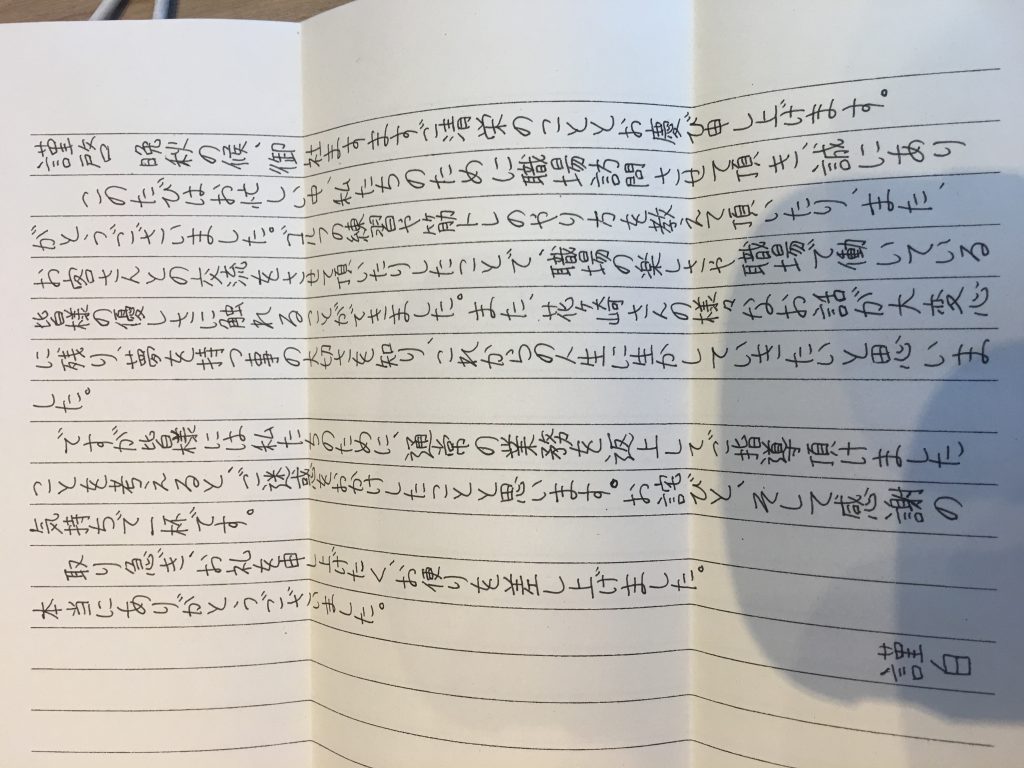 謹啓　晩秋の候、御社ますますご清栄のこととお慶び申し上げます。
このたびはお忙しい中、私たちのために職場訪問させて頂き、誠にあり
がとうございました。の練習や筋トレのやり方を教えて頂いたり、また、
お客さんとの交流をさせて頂いたりしたことで、職場の楽しさや職場で働いている
皆様の優しさに触れることができました。また、花ヶ崎さんの様々なお話が大変心
に残り、夢を持つ事の大切さを知り、これからの人生に生かしていきたいと思いま
した。
ですが皆様には私たちのために、通常の業務を返上してご指導頂けました
ことを考えると、ご迷感をおかけしたことと思います。お詫びと、そして感謝の
気持ちで一杯です。
取り急ぎ、お礼を申し上げたく、お便りを差し上げました。
本当にありがとうございました。
謹白